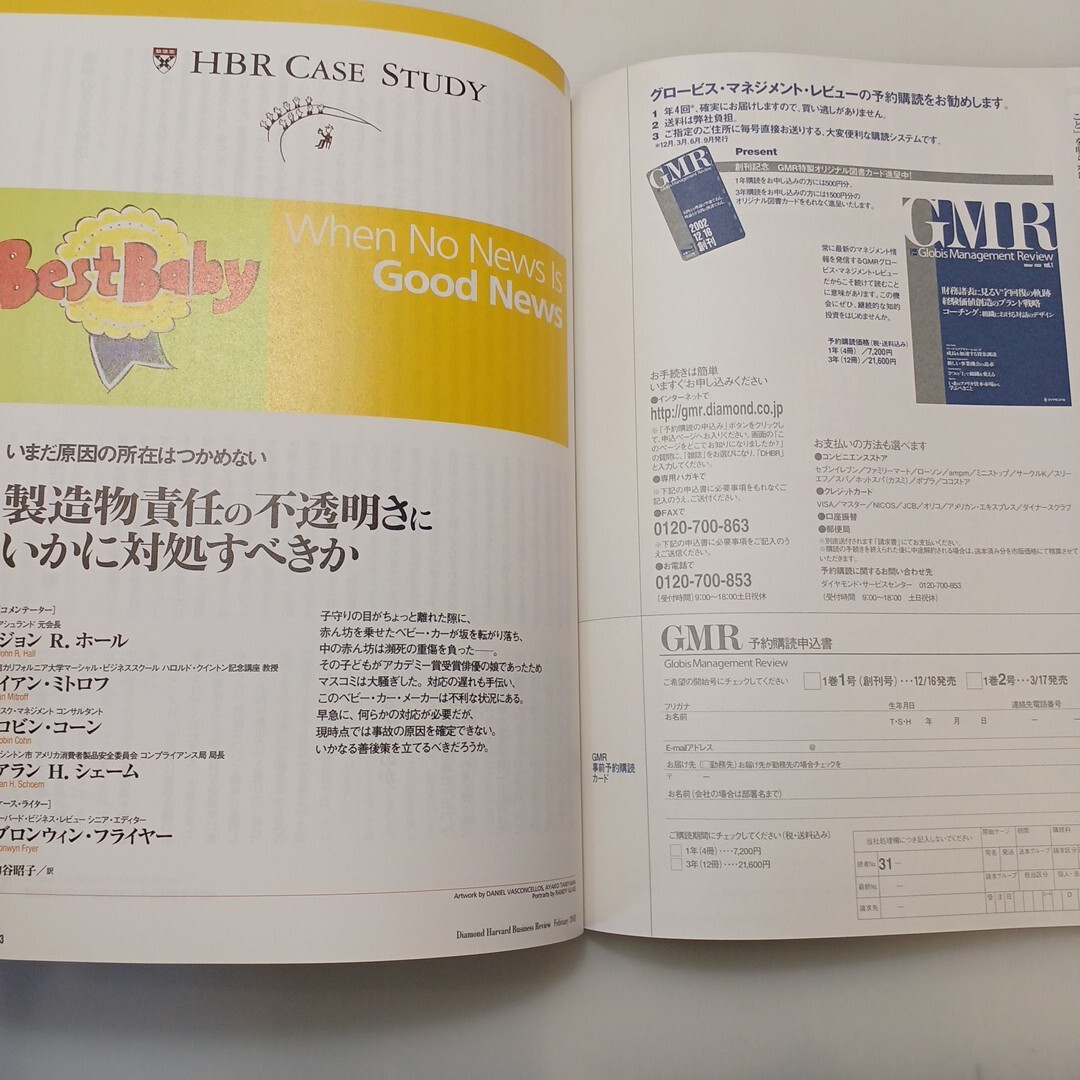 HBR CASE STUDY
BestBaby
When No News Is
Good News
いまだ原因の所在はつかめない
製造物責任の不透明さに
いかに対処すべきか
コメンテーター]
アシュランド 元会長
ジョン R. ホール
John R. Hall
南カリフォルニア大学マーシャル・ビジネススクール ハロルド・クイントン記念講座 教授
イアン・ミトロフ
Ian Mitroff
スク・マネジメント コンサルタント
ロビン・コーン
Robin Cohn
シントン市 アメリカ消費者製品安全委員会 コンプライアンス局 局長
アラン H. シェーム
Alan H. Schoem
ケース・ライター]
ーバード・ビジネス・レビュー シニア・エディター
ブロンウィン・フライヤー
ronwyn Fryer
谷昭子/訳
子守りの目がちょっと離れた隙に、
赤ん坊を乗せたベビー・カーが坂を転がり落ち、
中の赤ん坊は瀕死の重傷を負った──。
その子どもがアカデミー賞受賞俳優の娘であったため
マスコミは大騒ぎした。対応の遅れも手伝い、
このベビー・カー・メーカーは不利な状況にある。
早急に、何らかの対応が必要だが、
現時点では事故の原因を確定できない。
いかなる善後策を立てるべきだろうか。
Artwork by DANIEL VASCONCELLOS, AYAKO
Portraits by RANDY
Diamond Harvard Business Review February
3
グロービス・マネジメント・レビューの予約購読をお勧めします。
1 年4回*、確実にお届けしますので、買い逃しがありません。
2 送料は弊社負担。
3 ご指定のご住所に毎号直接お送りする、大変便利な購読システムです。
*12月、3月、6月、9月発行
Present
創刊記念 GMR特製オリジナル図書カード進呈中!
1年購読をお申し込みの方には500円分、
3年購読をお申し込みの方には1500円分の
オリジナル図書カードをもれなく進呈いたします。
GMR
Globis Management Review
2002
12.16
創刊
常に最新のマネジメント情
報を発信するGMRグロー
ビス・マネジメント・レビュー
だからこそ続けて読むこと
に意味があります。この機
会にぜひ、継続的な知的
投資をはじめませんか。
予約購読価格(税・送料込み)
1年(4冊)/7,200円
3年(12冊)/21,600円
GMR
Globis Management Review
vol.1
財務諸表に見るV字回復の軌跡
経験価値創造のブランド戦略
コーチング:組織における対話のデザイン
お手続きは簡単
いますぐお申し込みください
●インターネットで
http://gmr.diamond.co.jp
※「予約購読の申込み」ボタンをクリックし
て、申込ページへお入りください。画面の「こ
のページをどこでお知りになりましたか?」
の質問に、「雑誌」をお選びになり、「DHBR」
と入力してください。
●専用ハガキで
※下記の申込書に必要事項をもれなくご
記入のうえ、ご送付ください。
●FAXで
0120-700-863
※下記の申込書に必要事項をご記入のう
えご送信ください。
●お電話で
0120-700-853
[受付時間]9:00〜18:00土日祝休
お支払いの方法も選べます
●コンビニエンスストア
セブンイレブン/ファミリーマート/ローソン/ampm/ミニストップ/サークルK/スリー
エフ/スパ/ホットスパ(カスミ)/ポプラ/ココストア
●クレジットカード
VISA/マスター/NICOS/JCB/オリコ/アメリカン・エキスプレス/ダイナースクラブ
●口座振替
●郵便局
※別途送付されます「請求書」にてお支払いください。
※購読の手続きを終えられた後に中途解約される場合は、送本済み分を市販価格にて精算させて
いただきます。
予約購読に関するお問い合わせ先
ダイヤモンド・サービスセンター 0120-700-853
[受付時間 9:00〜18:00 土日祝休]
GMR 予約購読申込書
Globis Management Review
ご希望の開始号にチェックしてください 1巻1号(創刊号)…12/16発売 1巻2号…3/17発売
フリガナ 生年月日 連絡先電話番号
お名前 T・S・H 年 月 日 ー ー
E-mailアドレス @
お届け先(□勤務先)お届け先が勤務先の場合チェックを
〒 ー
お名前(会社の場合は部署名まで)
GMR
事前予約購読
カード
ご購読期間にチェックしてください(税・送料込み)
1年(4冊)‥‥7,200円
3年(12冊)‥‥21,600円
当社処理欄につき記入しないでください
開始ケージ 期間 購読料
読者No. 31ー 宛名 発送 送本グループ 請求区分
最終No. ー 請本グループ 担当区分 個人・法
請求先 ー 受 注 日 D